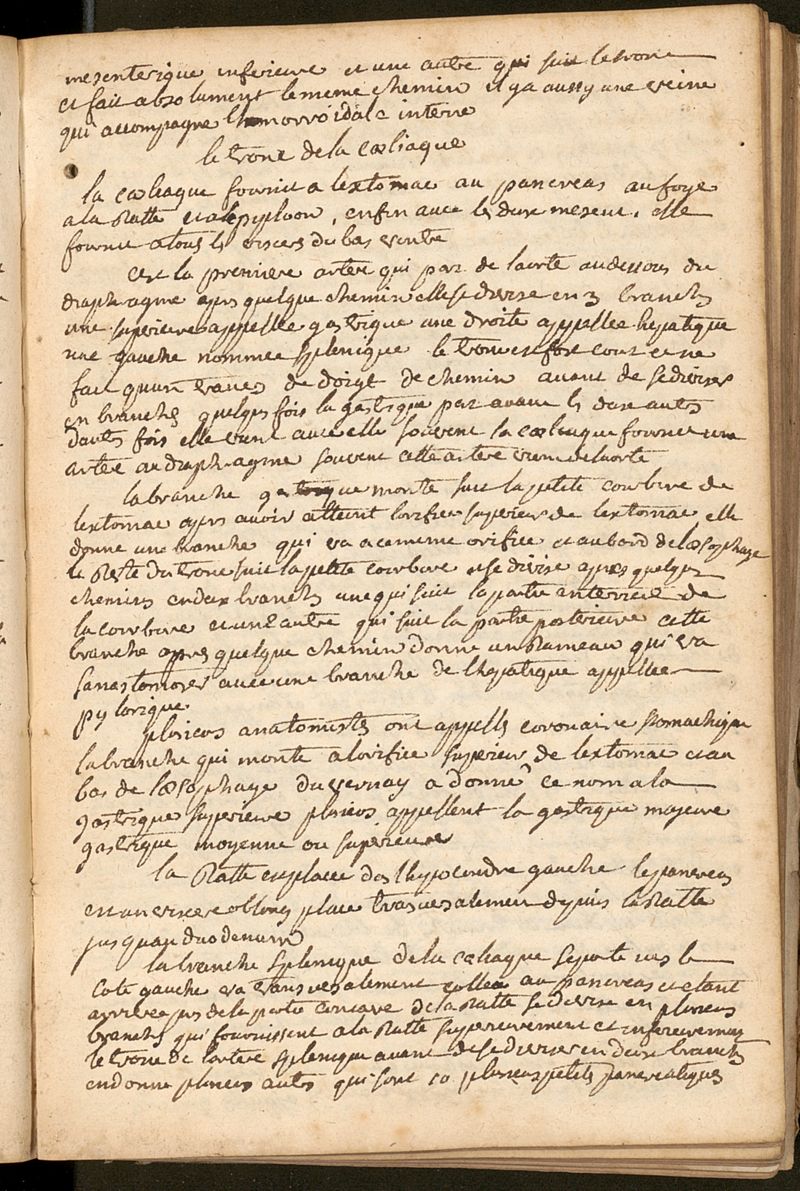 mesenterique inferieure et une autre qui suit le tronc
et fait absolument le meme chemin il y a aussy une veine
qui accompagne l'hemorroidale interne
le tronc de la cœliaque
la cœliaque fournit a lextomac au pancreas au foye
a la Ratte et au pyloon, enfin avec les deux mesent. elle
fournit a tous les visceres du bas ventre
c'est la premiere artere qui part de laorte audessous du
diaphragme aprs quelque chemin elle se divise en 3 branchs
une superieure appellee gastrique une droite appellee hepatique
une gauche nommee splenique le tronc est fort court et ne
fait quun travers de doigt de chemin avant de se diviser
en branches quelques fois la gastrique part avant les deux autres
dautres fois elle vient avec elle souvent la cœliaque fournit une
artere au diaphragme souvent cette artere vient de laorte
la branche gastrique monte suit la petite courbure de
lextomac aprs avoir atteint lorifice superieur de lextomac elle
donne une branche qui va a ce meme orifice et au bord de lœsophage
le Reste du tronc suit la petite courbure et se divise aprs quelques
chemins en deux branchs une qui suit la partie anterieure de
la courbure et une autre qui suit la partie posterieure cette
branche aprs quelque chemin donne un Rameau qui va
sanastomoser avec une branche de lhepatique appellee
pylorique
plusieurs anatomistes ont appellé coronaire stomachique
la branche qui monte a lorifice superieur de lextomac et au
bas de lœsophage duvernay a donné ce nom a la
gastrique superieure plusieurs appellent la gastrique majeure
gastrique moyenne ou superieure
la Ratte est placée dans lhypocondre gauche le pancreas
est un viscere oblong placé transversalement depuis la Ratte
jusquau duodenum
la branche splenique de la cœliaque se porte vers le
coté gauche va transversalement collée au pancreas et etant
arrivée prs de la partie concave de la Ratte se divise en plusieurs
branchs qui fournissent a la Ratte superieurement et inferieurement
le tronc de lartere splenique avant de se diviser en deux branchs
en donne plusieurs autres qui sont 1o plusieurs petits pancreatiques